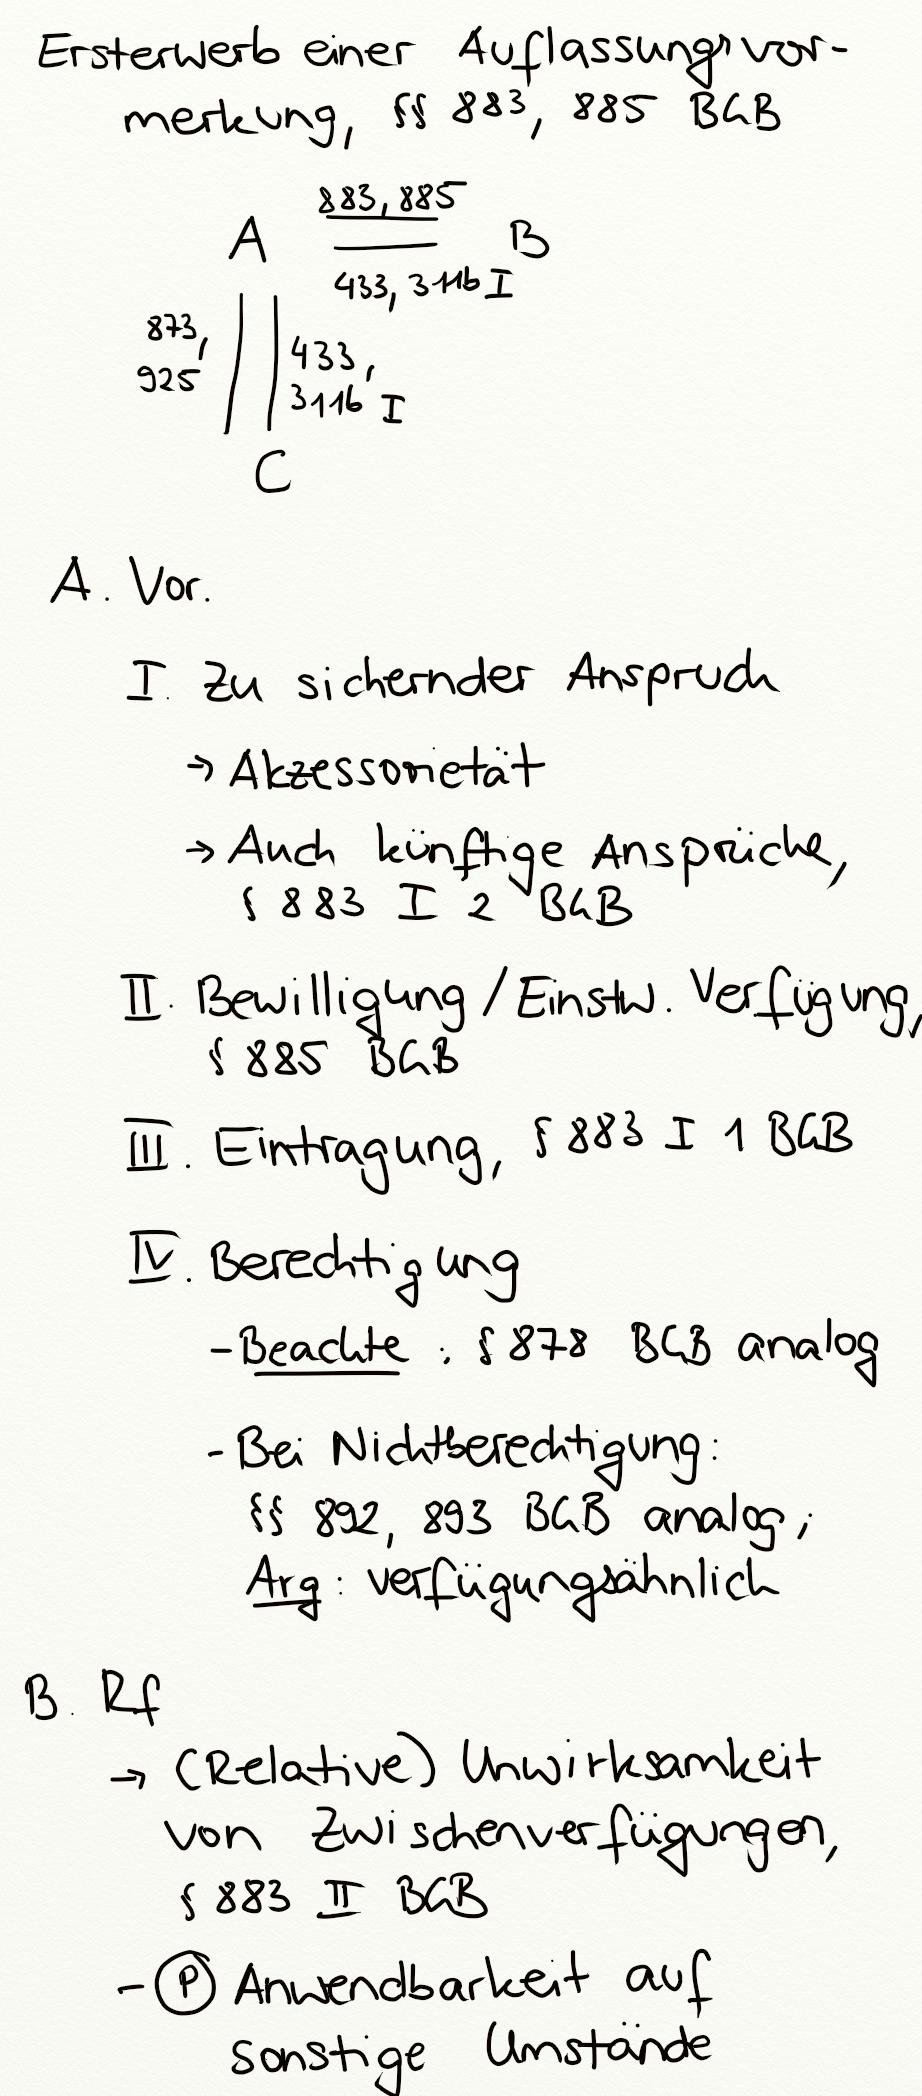 Ersterwerb einer Auflassungsvor-
merkung, §§ 883, 885 BGB
883, 885
A
B
433, 311b I
873,
925
433,
311b I
C
A. Vor.
I. Zu sichernder Anspruch
→ Akzessorietät
→ Auch künftige Ansprüche,
§ 883 I 2 BGB
II. Bewilligung / Einstw. Verfügung,
§ 885 BGB
III. Eintragung, § 883 I 1 BGB
IV. Berechtigung
- Beachte: § 878 BGB analog
- Bei Nichtberechtigung:
§§ 892, 893 BGB analog;
Arg: verfügungsähnlich
B. Rf
→ (Relative) Unwirksamkeit
von Zwischenverfügungen,
§ 883 II BGB
- (P) Anwendbarkeit auf
sonstige Umstände